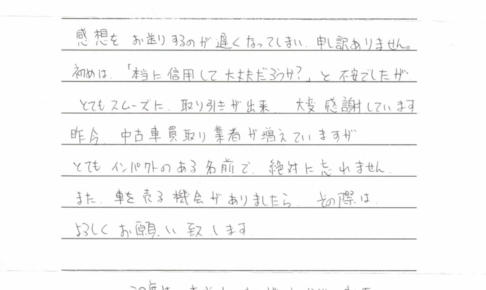 感想を お送りするのが 遅くなってしまい 申し訳ありません。
初めは、「本当に信用して大丈夫だろうか?」と 不安でしたが
とてもスムーズに 取り引きが出来 大変 感謝しています
昨今、中古車買取り業者が増えていますが
とても インパクトのある名前で、絶対に忘れません
また 車を売る機会がありましたら その際は
よろしくお願い致します